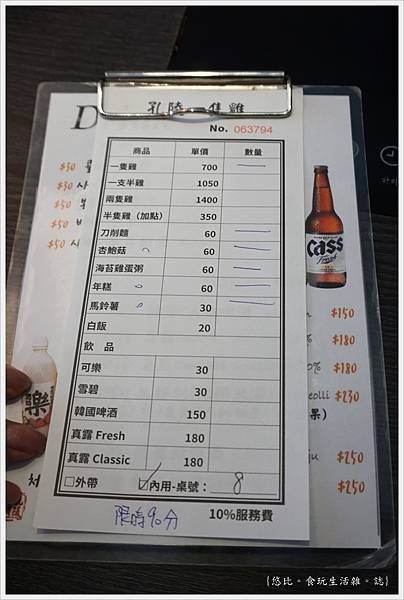 孔陵一隻雞
No. 063794
商品 單價 數量
一隻雞 700 一
一支半雞 1050
兩隻雞 1400
半隻雞（加點） 350
刀削麵 60 一
杏鮑菇 60 一
海苔雞蛋粥 60 一
年糕 60 一
馬鈴薯 30 一
白飯 20
飲 品
可樂 30
雪碧 30
韓國啤酒 150
真露 Fresh 180
真露 Classic 180
□外帶 ☑內用-桌號： 8
限時90分 10%服務費
D
$30
$30
$50
$50
$50
Cass
Fresh
$150
$180
0% $180
eolli $230
果）
ju $250
$250
樂
{悠比。食玩生活雜。誌}